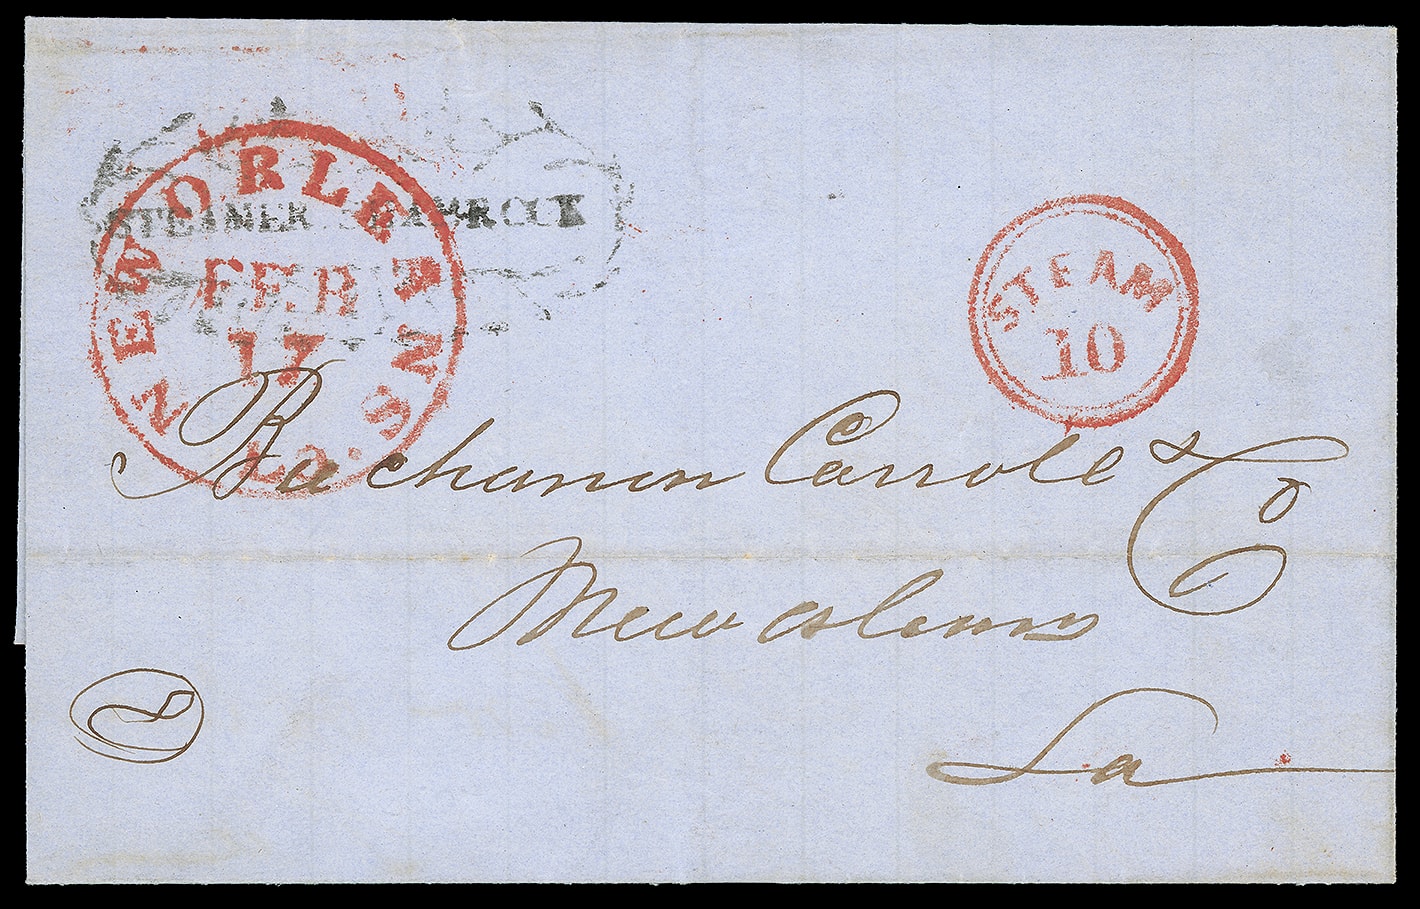 STEAMER SHAMROCK
NEW ORLEANS La.
FEB
17
STEAM
10
Buchanan Carroll & Co
New Orleans
La